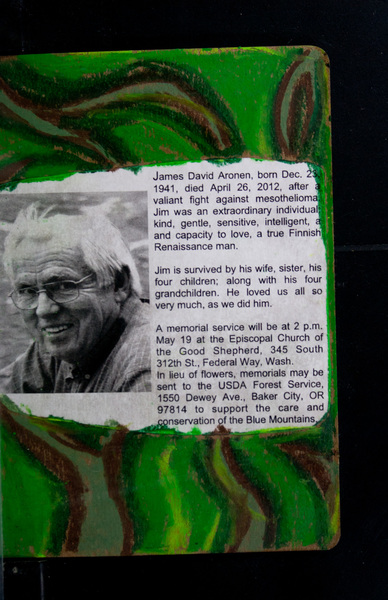 James David Aronen, born Dec. 23,
1941, died April 26, 2012, after a
valiant fight against mesothelioma.
Jim was an extraordinary individual:
kind, gentle, sensitive, intelligent, a
and capacity to love, a true Finnish
Renaissance man.
Jim is survived by his wife, sister, his
four children; along with his four
grandchildren. He loved us all so
very much, as we did him.
A memorial service will be at 2 p.m.
May 19 at the Episcopal Church of
the Good Shepherd, 345 South
312th St., Federal Way, Wash.
In lieu of flowers, memorials may be
sent to the USDA Forest Service,
1550 Dewey Ave., Baker City, OR
97814 to support the care and
conservation of the Blue Mountains.